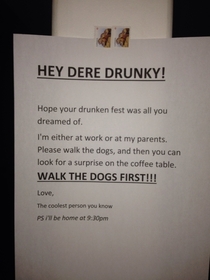 HEY DERE DRUNKY!
Hope your drunken fest was all you
dreamed of.
I'm either at work or at my parents.
Please walk the dogs, and then you can
look for a surprise on the coffee table.
WALK THE DOGS FIRST!!!
Love,
The coolest person you know
PS i'll be home at 9:30pm